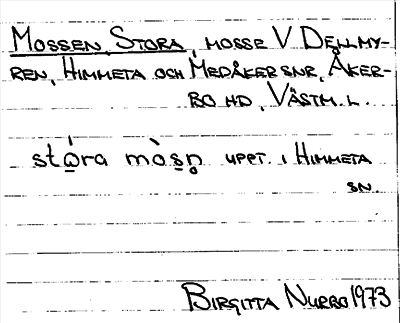 MOSSEN, STORA, MOSSE V DELLMY-
REN, HIMMETA OCH MEDÅKER SNR, ÅKER-
BO HD, VÄSTM. L.
stó̲ra mòs̲n̥ UPPT. I HIMMETA
SN.
BIRGITTA NURBO 1973